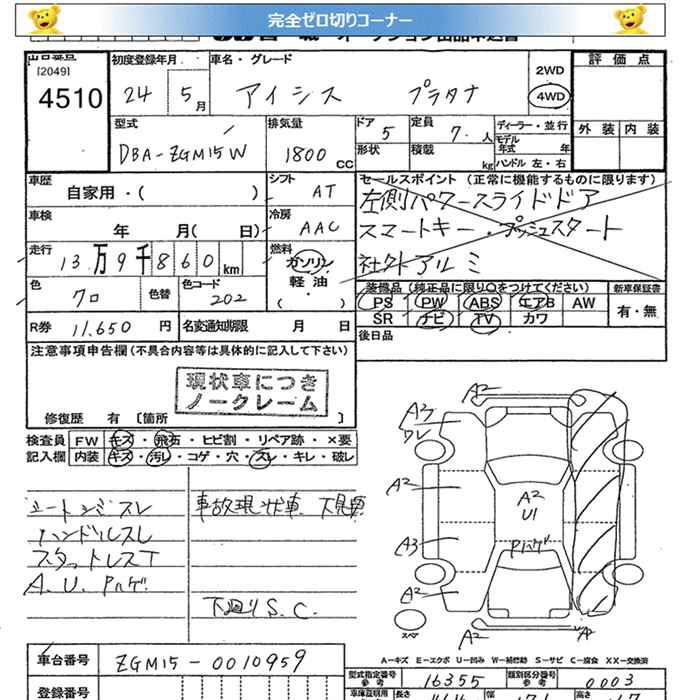 完全ゼロ切りコーナー
出品番号 初度登録年月 車名・グレード 評価点
[2049] 2WD
4510 24 5月 アイシス プラタナ 4WD
外装 内装
型式 排気量 ドア 5 定員 7.人 ディーラー・並行
モデル年式 年
DBA-ZGM15W 1800cc 形状 積載 kg ハンドル 左・右
車歴 シフト セールスポイント (正常に機能するものに限ります)
自家用・( ) AT 左側パワースライドドア
車検 冷房 スマートキー・プッシュスタート
年 月( 日) AAC
走行 燃料 社外アルミ
13万9千860km ガソリン
軽油
・( )
色 色替 色コード 装備品 (純正品に限り○をつけてください) 新車保証書
クロ 202 PS PW ABS エアB AW 有・無
SR ナビ TV カワ
R券 11,650円 名変通知期限 月 日 後日品
注意事項申告欄 (不具合内容等は具体的に記入して下さい)
現状車につき
ノークレーム
修復歴 有 〔箇所 〕
検査員 FW キズ・飛石・ヒビ割・リペア跡・×要
記入欄 内装 キズ・汚レ・コゲ・穴・スレ・キレ・破レ
事故現状車 下見要
ハンドルスレ
スタットレスT
A.U.Pハゲ
下廻りS.C.
A2
A2
A2
A2
U1
Pハゲ
A3
A2
A2
スペア
A
A－キズ E－エクボ U－凹み W－補修跡 S－サビ C－腐食 XX－交換済
車台番号 ZGM15-0010959
型式指定番号 参考 16355 類別区分番号 参考 0003
登録番号
長さ 幅 高さ